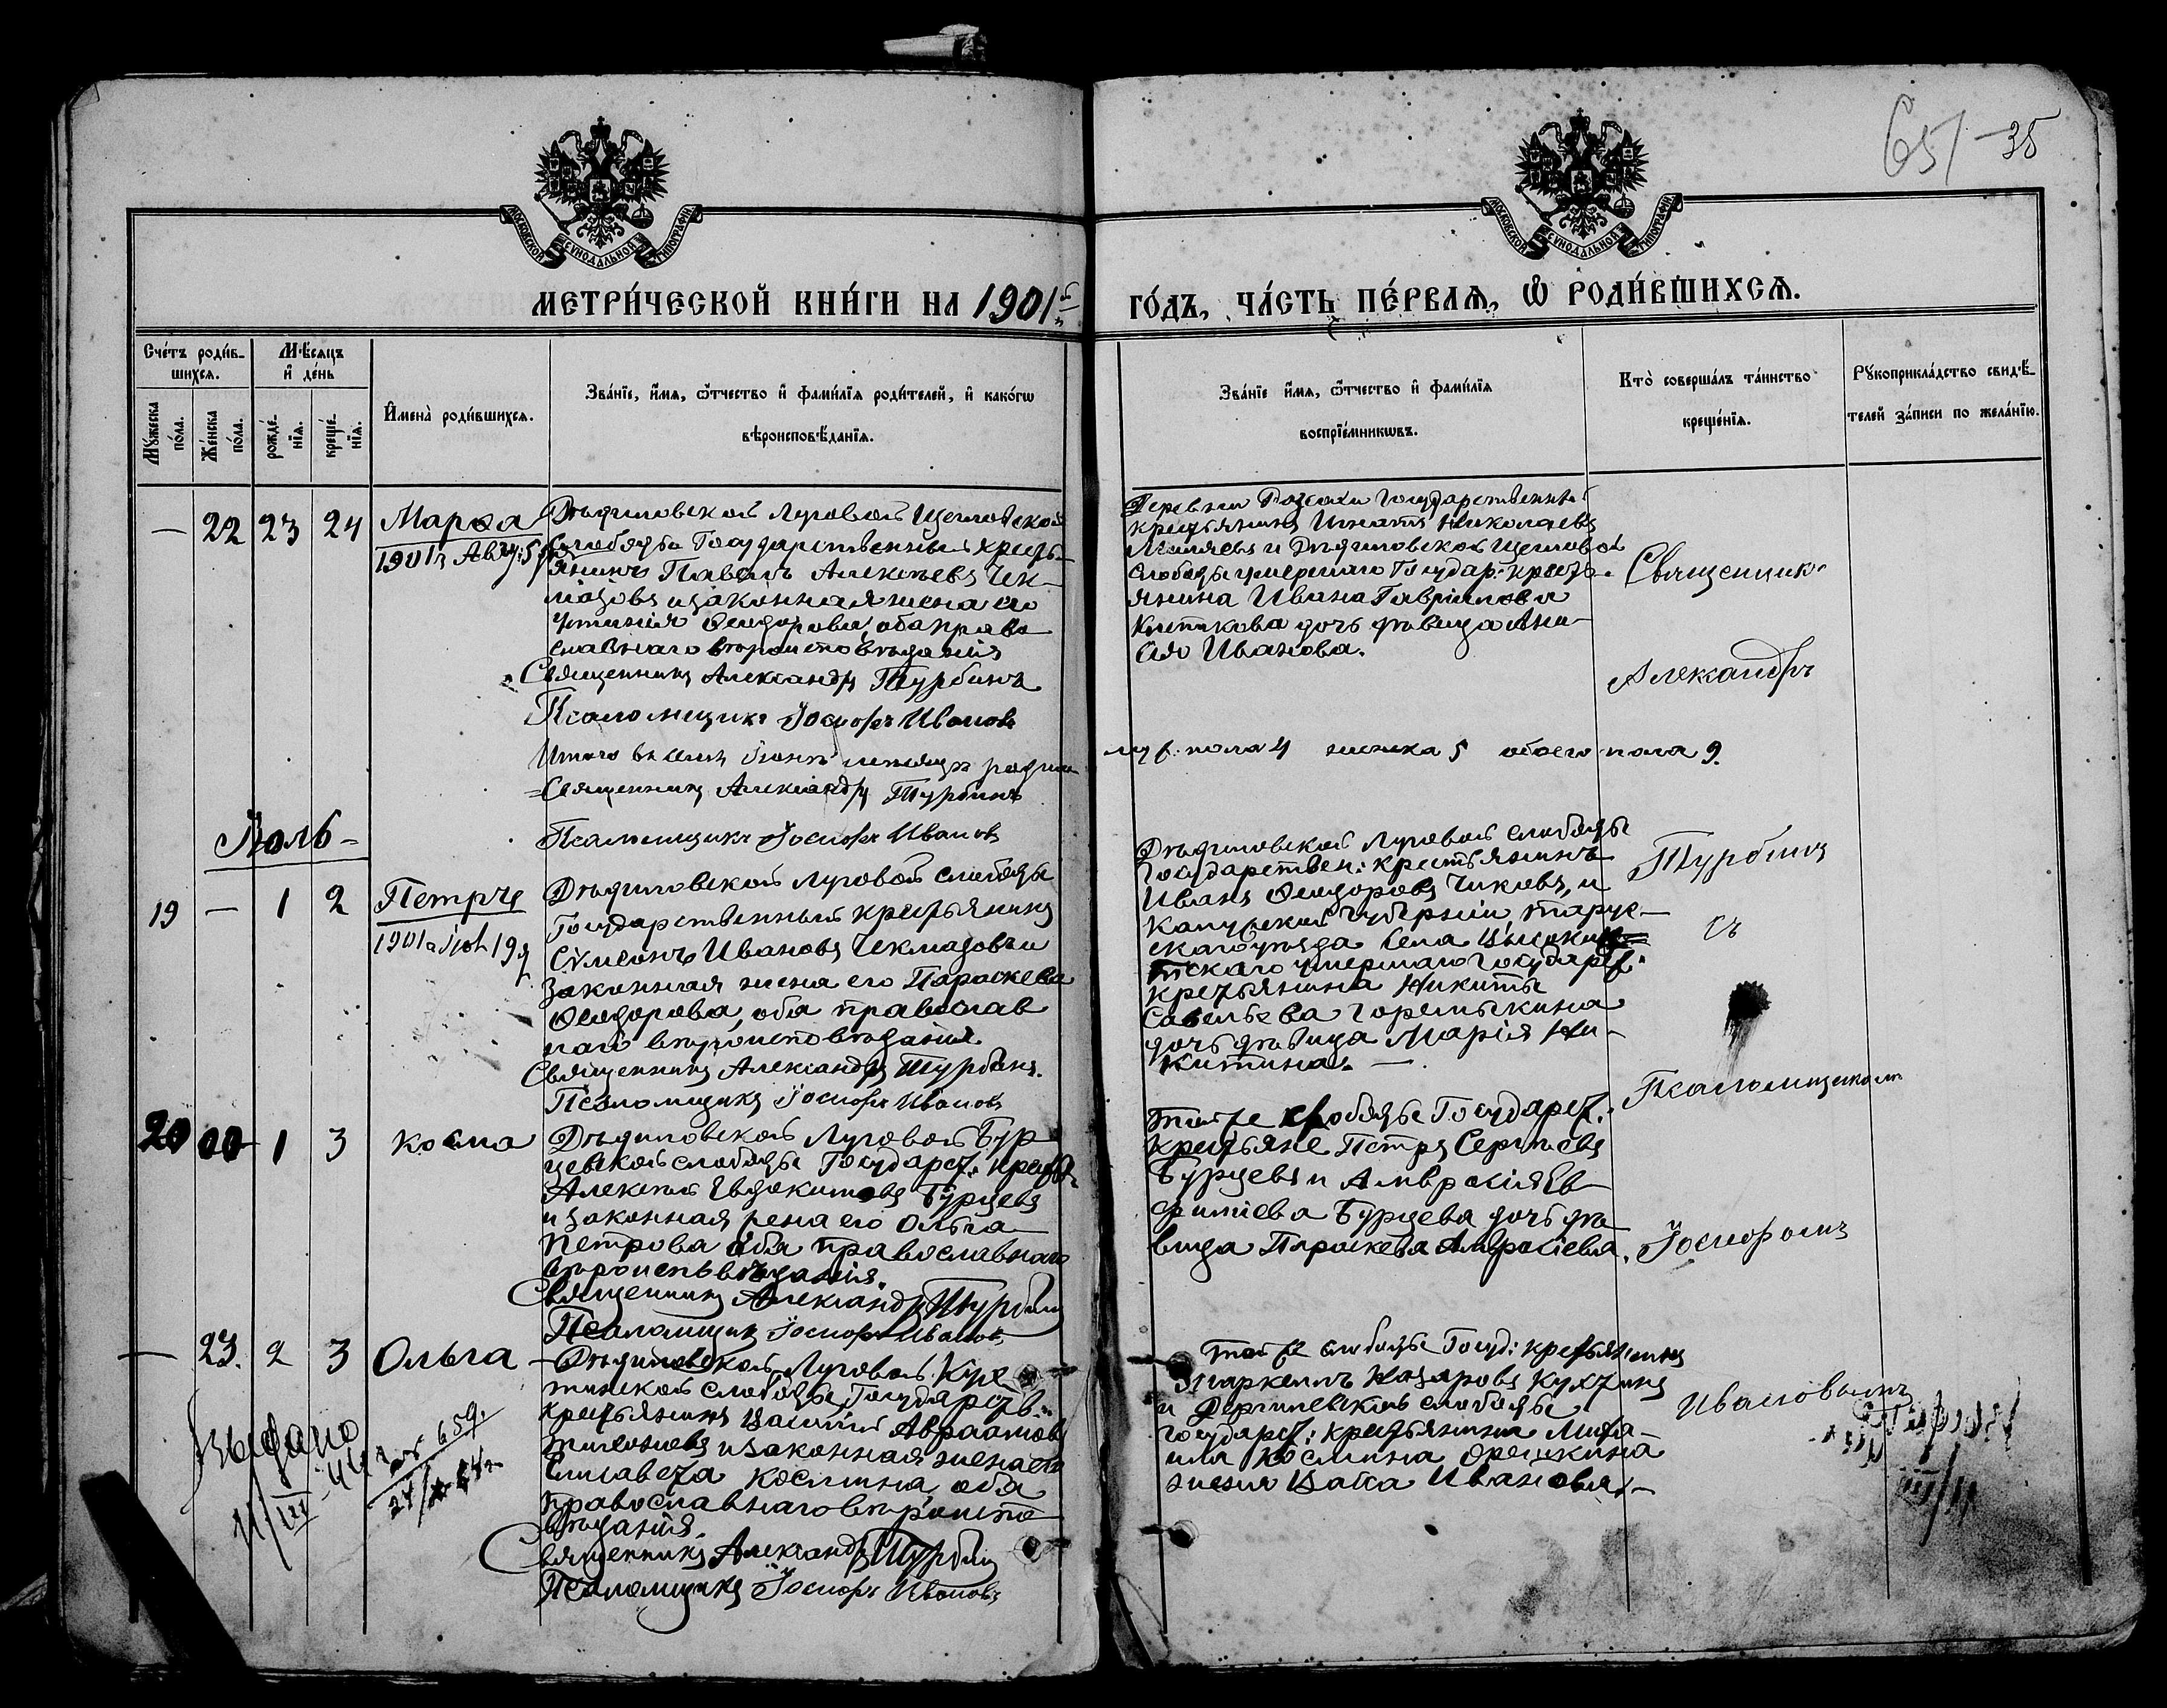 65/ -35
МОСКОВСКОЙ СѴНОДАЛЬНОЙ ТИПОГРАФІИ
МОСКОВСКОЙ СѴНОДАЛЬНОЙ ТИПОГРАФІИ
МЕТРИ́ЧЕСКОЙ КНИ́ГИ НА 1901й ГО́ДЪ, ЧА́СТЬ ПЕ́РВАѦ, Ѡ҆ РОДИ́ВШИХСѦ.
Сче́тъ роди́в-
шихсѧ.
Мꙋ́жеска по́ла.
Же́нска по́ла.
Мѣ́сѧцъ
и҆ де́нь
рожде́-нїѧ.
креще́-нїѧ.
И҆мена̀ роди́вшихсѧ.
Зва́нїе, и҆́мѧ, ѻ҆́тчество и҆ фами́лїѧ роди́телей, и҆ како́гѡ
вѣроисповѣ́данїѧ.
Зва́нїе и҆́мѧ, ѻ҆́тчество и҆ фами́лїѧ
воспрїе́мникѡвъ.
Кто̀ соверша́лъ та́инство
креще́нїѧ.
Рꙋкоприкла́дство свидѣ́-
телей за́писи по жела́нїю.
— 22 23 24 Марѳа
Дѣдиловской Луговой Щегловской
слободы Государственный кресть-
янинъ Павелъ Алексѣевъ Чек-
мазовъ и законная жена его
Ѳеодорова, оба право
славнаго вѣроисповѣданія
Священникъ Александръ Турбинъ
Псаломщикъ Іосифъ Ивановъ
Государственный
крестьянинъ Игнатъ Николаевъ
и Дѣдиловской Щегловской
слободы умершаго Государ: кресть-
янина Ивана Гавріилова
дочь дѣвица Ани-
сія Иванова.
Священникъ
Александръ
Итого въ семъ Іюнѣ мѣсяцѣ родил
муж: пола 4 женска 5 обоего пола 9.
Священникъ Александръ Турбинъ
Псаломщикъ Іосифъ Ивановъ
Іюль
19 — 1 2 Петръ
Дѣдиловской Луговой слободы
Государственный крестьянинъ
Сѵмеонъ Ивановъ Чекмазовъ и
законная жена его Параскева
Ѳеодорова, оба православ
наго вѣроисповѣданія.
Священникъ Александръ Турбинъ.
Псаломщикъ Іосифъ Ивановъ
Дѣдиловской Луговой слободы
Государствен: крестьянинъ
Иванъ Ѳеодоровъ Чиковъ, и
Калужской губерніи, Тарус-
скаго уѣзда села
умершаго Государст:
крестьянина Никиты
Савельева Горемыкина
дочь дѣвица Марія Ни-
китина. —
Турбинъ
съ
Псаломщикомъ
20 1 3 Косма
Дѣдиловской Луговой Бур
цевской слободы Государст: крест
Алексѣй Евдокимовъ Бурцевъ
и законная жена его Ольга
Петрова оба православнаго
вѣроисповѣданія.
Священникъ Александръ Турбинъ
Псаломщикъ Іосифъ Ивановъ
той же слободы Государст:
крестьяне Петръ Сергѣевъ
Бурцевъ и Амвросія Ев
фиміева Бурцева дочь дѣ
вица Параскева Амвросіева.
Іосифомъ
— 23. 2 3 Ольга
Дѣдиловской Луговой
слободы Государств:
крестьянинъ Авраамовъ
и законная жена его
Елисавета Космина, оба
православнаго вѣроиспо
вѣданія.
Священникъ Александръ Турбинъ
Псаломщикъ Іосифъ Ивановъ
той же слободы Госуд: крестьянинъ
Назаровъ
и слободы
Государст: крестьянина Миха-
ила Космина Орешкина
жена Васса Иванова.—
Ивановымъ
Выдано